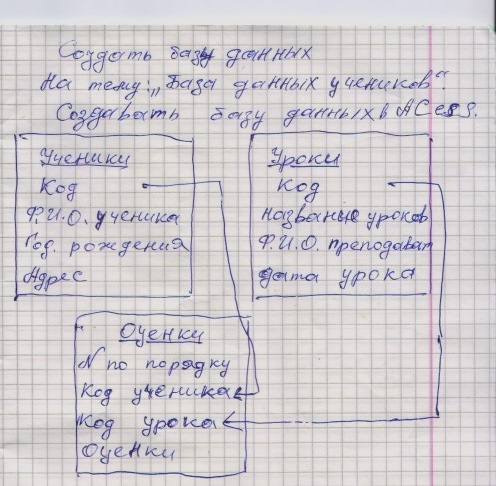 Создать базу данных
На тему: „База данных учеников".
Создавать базу данных в ACess.
Ученики
Код
Ф.И.О. ученика
Год. рождения
Адрес
Уроки
Код
Названые уроков
Ф.И.О. преподават
дата урока
Оценки
N по порядку
Код ученика
Код урока
Оценки